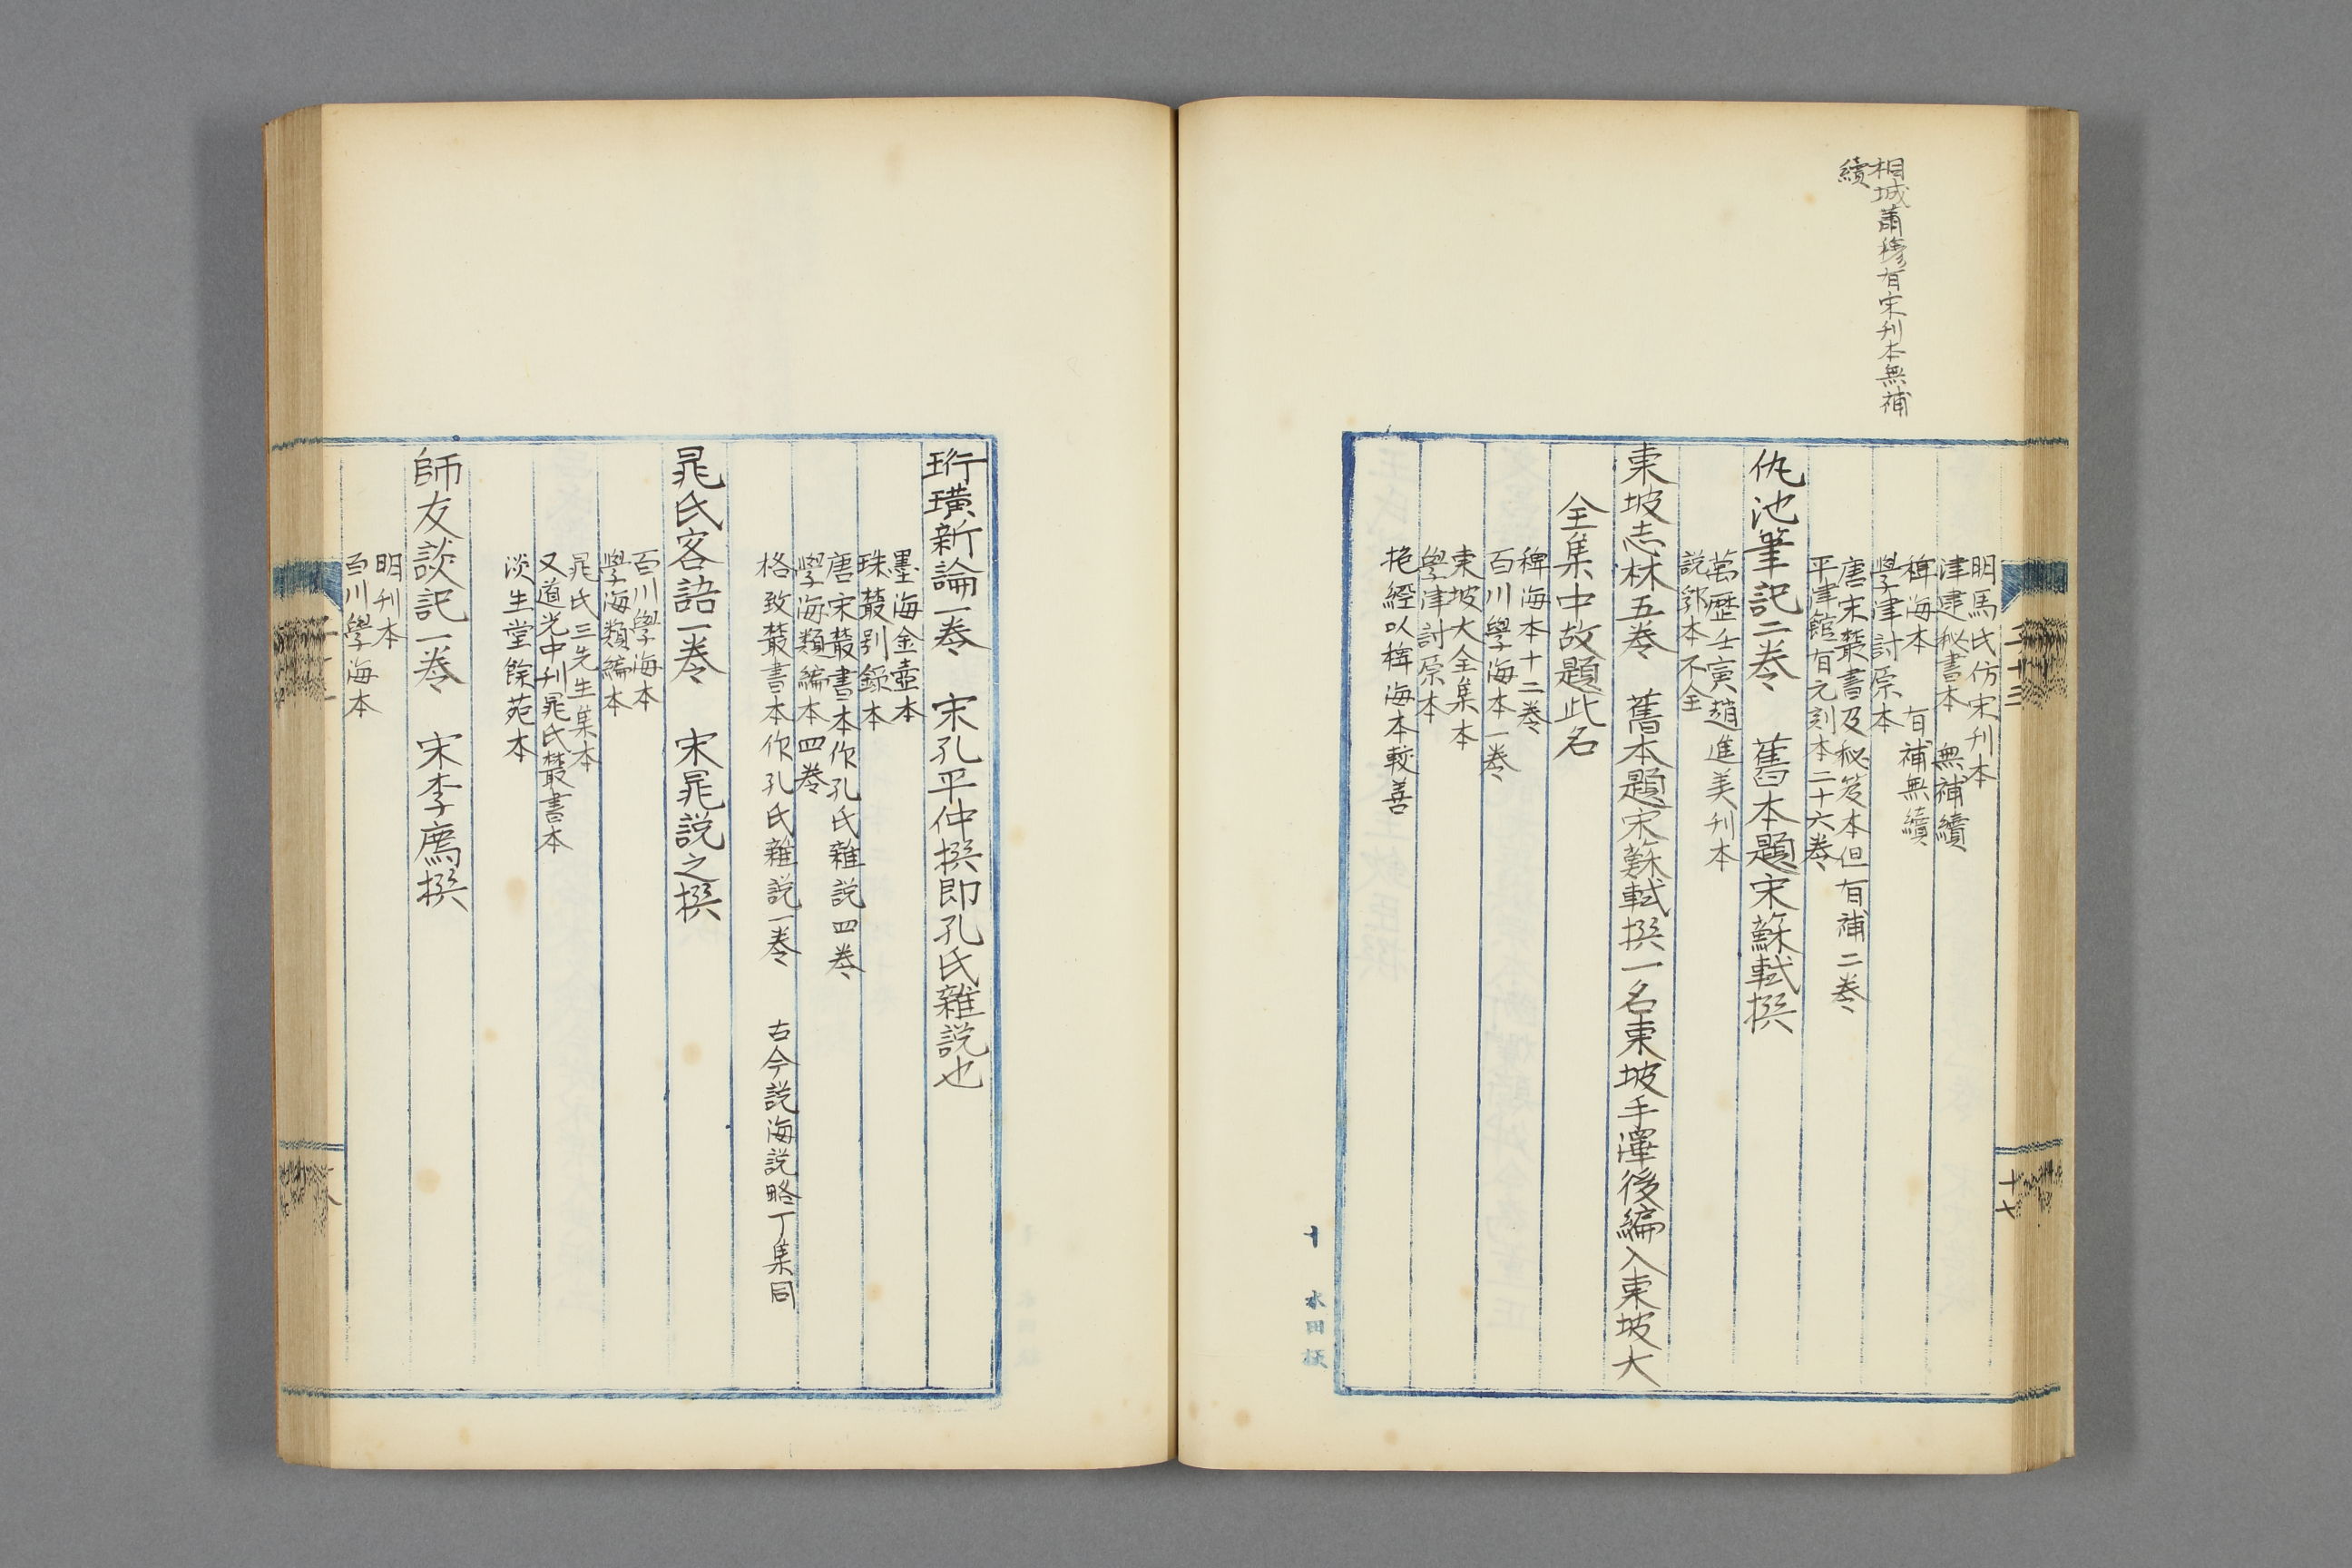 相城蕭穆有宋刋本無補
續
二十三
十七
明馬氏仿宋刋本
津逮秘書本 無補續
稗海本 有補無續
學津討原本
唐宋叢書及秘笈本但有補二卷
平津館有元刻本二十六卷
仇池筆記二卷 舊本題宋蘇軾撰
萬歷壬寅趙進美刋本
説郛本不全
東坡志林五卷 舊本題宋蘇軾撰一名東坡手澤後編入東坡大
全集中故題此名
稗海本十二卷
百川學海本一卷
東坡大全集本
學津討原本
艳經以稗海本較善
十 水田板
珩璜新論一卷 宋孔平仲撰即孔氏雜説也
墨海金壺本
珠叢别錄本
唐宋叢書本作孔氏雜説四卷
學海類編本四卷
格致叢書本作孔氏雜説一卷 古今説海説略丁集同
晁氏客語一卷 宋晁説之撰
百川學海本
學海類編本
晁氏三先生集本
又道光中刋晁氏叢書本
淡生堂餘苑本
師友談記一卷 宋李廌撰
明刋本
百川學海本